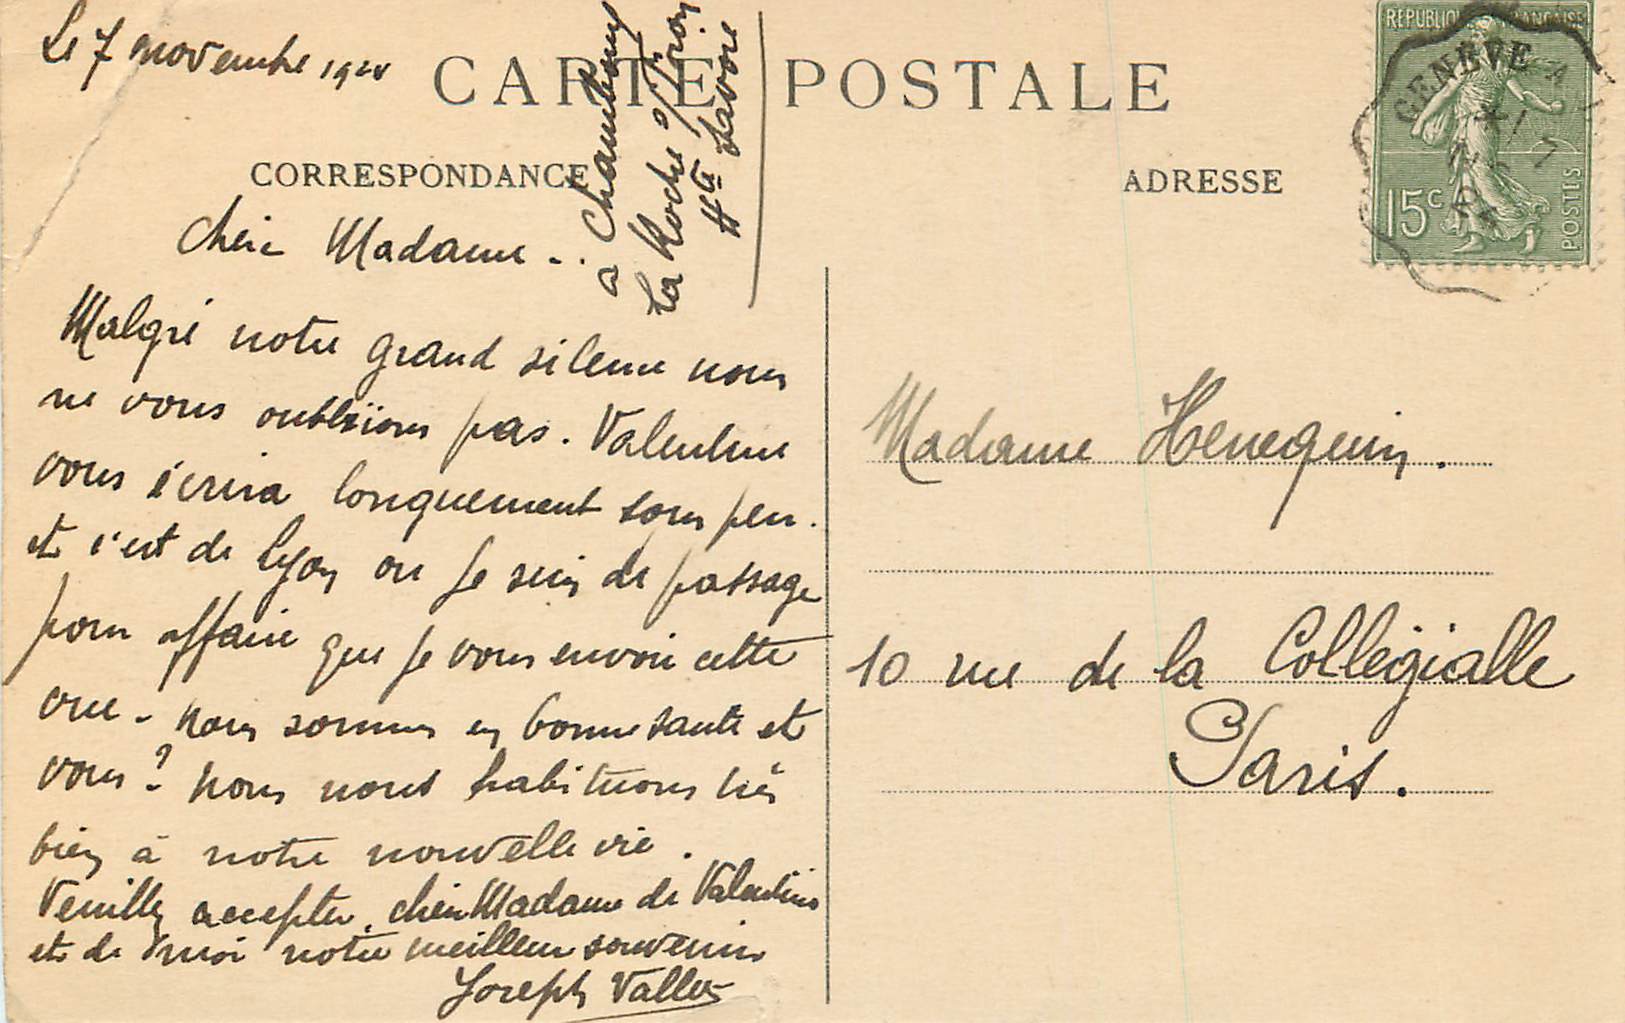 Le 7 novembre
CARTE POSTALE
à Chambouy
La Roche s/Foron
Hte Savoie
CORRESPONDANCE
ADRESSE
RÉPUBLIQUE FRANÇAISE
GENÈVE A
15c
POSTES
Chère Madame -.
Malgré notre grand silence nous
ne vous oublions pas. Valentine
vous écrira longuement sous peu.
et c'est de Lyon ou je suis de passage
pour affaire que je vous envoie cette
vue - nous sommes en bonne santé et
vous? nous nous habituons très
bien à notre nouvelle vie.
Veuillez accepter, chère Madame de Valentine
et de moi notre meilleur souvenir
Joseph
Madame Henequin.
10 rue de la Collégialle
Paris.